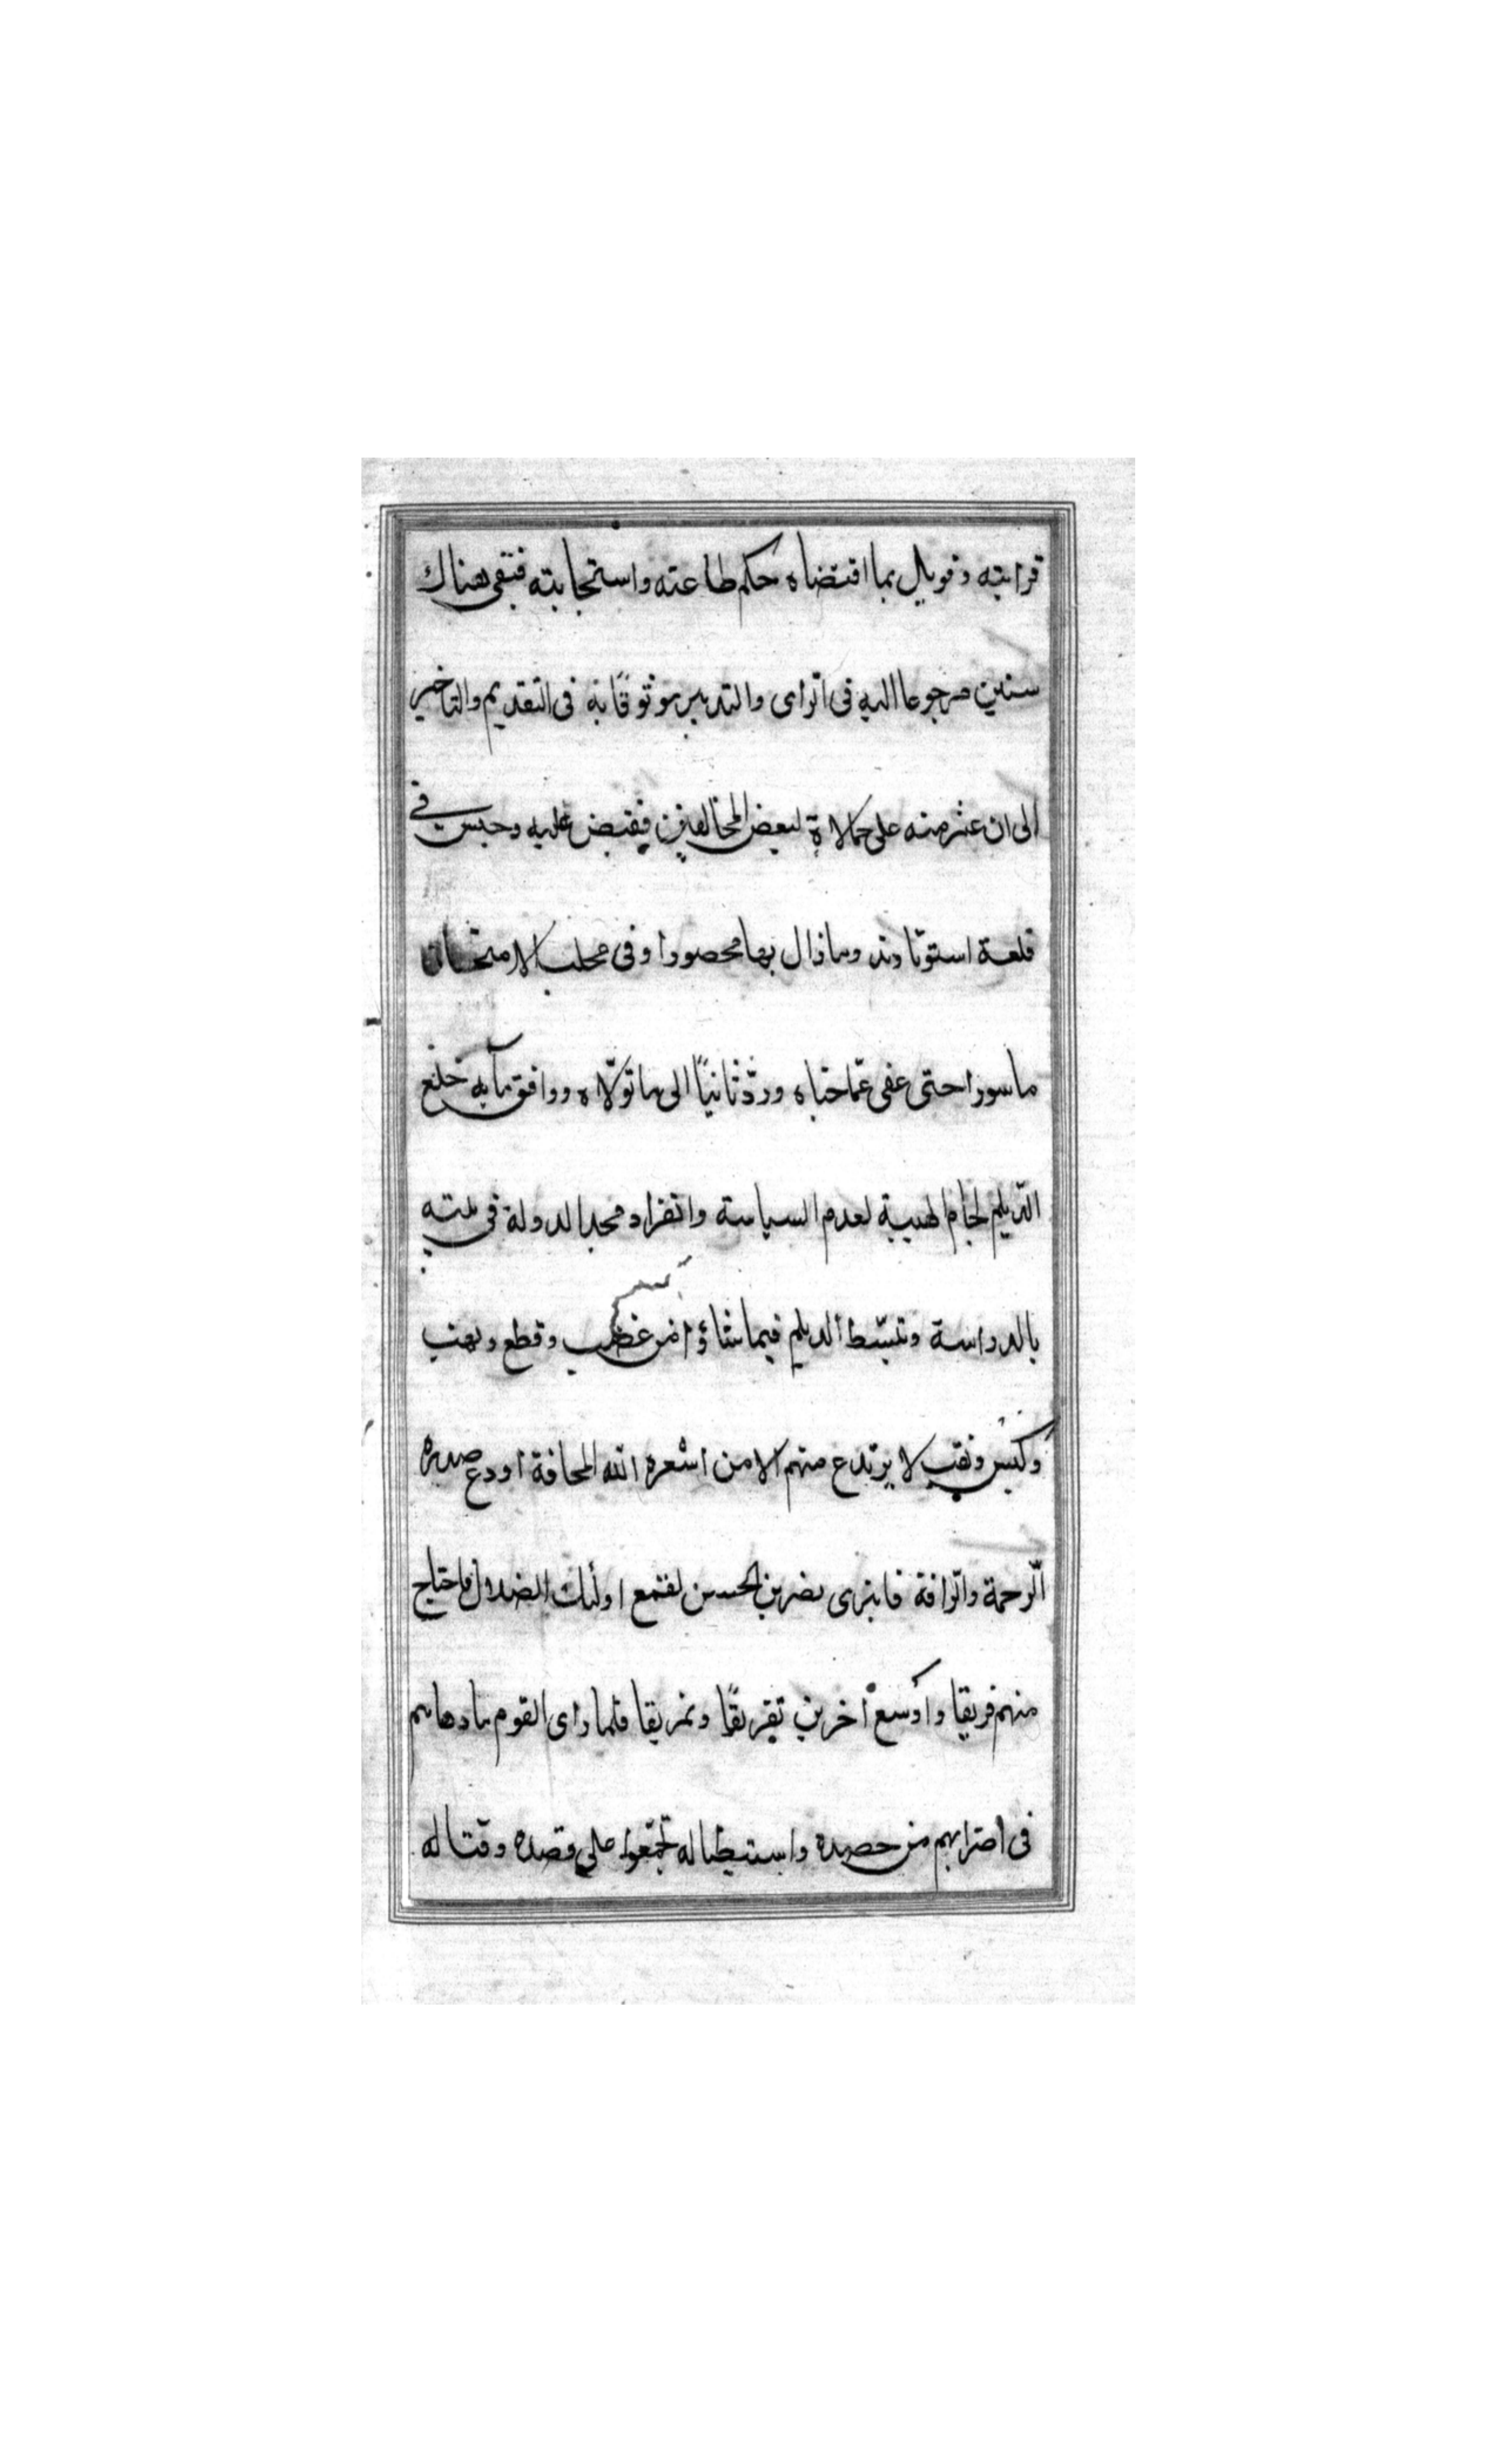 قرابته وقوبل بما اقتضاه حكم طاعته واستجابته فبقى هناك
سنين مرجوعا اليه فى الراى والتدبير موثوقًا به فى التقديم والتاخير
الى ان عثر منه على ممالاة لبعض المخالفين فقبض عليه وحبس فى
قلعة استوناوند ومازال بها محصورا وفى مخلب الامتحان
ماسورا حتى عفى عمّا جناه وردّ ثانيًا الى ما تولّاه ووافق مآبه خلع
الدّيلم لجام الهيبة لعدم السياسة وانفراد مجد الدولة فى بيته
بالدراسة وتبسّط الديلم فيما شاؤا من غصب وقطع ونهب
وكبس ونقب لا يرتدع منهم الا من اشعره الله المخافة اودع صدره
الرّحمة والرّافة فانبرى نصر بن الحسن لقمع اولئك الضلال فاجتاح
منهم فريقا وأوسع أخرين تفريقًا وتمزيقا فلما راى القوم ما دهاهم
فى اضرابهم من حصده واستيطاله تجمّعوا على قصده وقتاله